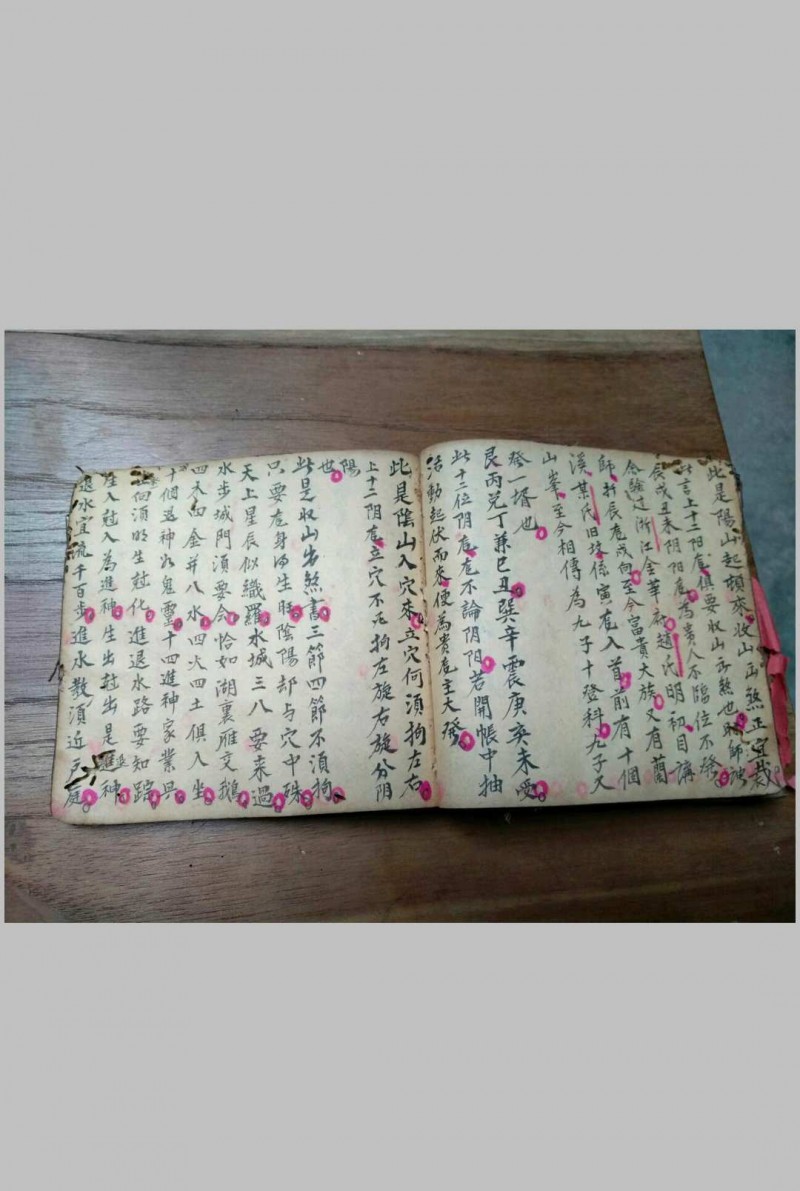 此是陽山起頂來收山出煞正宜裁
此言上十二阳龙俱要收山出煞也
辰戌丑未阴阳龙為貴人不臨位不發
余驗过浙江金華府趙氏明初目講
師扦辰龙戌向至今富貴大族又有蘭
溪某氏旧坟係寅龙入首前有十個
山峯至今相傳為九子十登科九子又
登一壻也
艮丙兑丁兼巳丑巽辛震庚亥未受
此十二位阴龙龙不論阴阳若開帳中抽
活動起伏而來便為貴龙主大發
此是陰山入穴來立穴何須拘左右
上十二阴龙立穴不论拘左旋右旋分阴
陽也
此是收山出煞書三節四節不須拘
只要龙身得生旺陰陽却与穴中殊
天上星辰似織羅水城三八要来過
水步城門須要会恰如湖裏雁交鵝
四木四金并八水四火四土俱入坐
十個退神如鬼靈十四進神家業興
個個須明生尅化進退水路要知踪
生入尅入為進神生出尅出是退神
退水宜流千百步進水数須近户庭